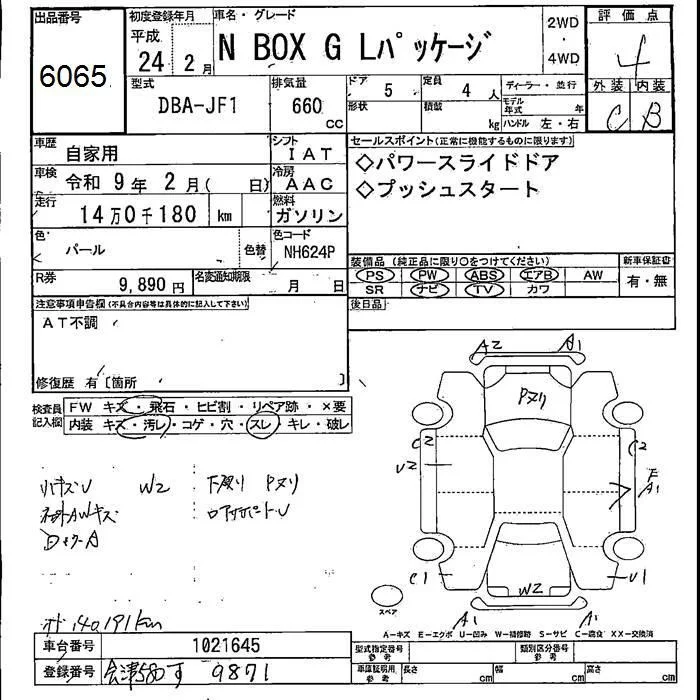 出品番号
6065
初度登録年月
平成
24 2月
車名・グレード
N BOX G Lパッケージ
2WD
・
4WD
評価点
4
外装 内装
C B
型式
DBA-JF1
排気量
660
cc
ドア
5
定員
4 人
形状
積載
kg
ディーラー・並行
モデル年式 年
ハンドル 左・右
車歴
自家用
シフト
IAT
車検
令和 9年 2月( 日)
冷房
AAC
走行
14万0千180 km
燃料
ガソリン
色
パール
色替
色コード
NH624P
R券
9,890円
名変通知期限
月 日
セールスポイント(正常に機能するものに限ります)
◇パワースライドドア
◇プッシュスタート
装備品(純正品に限り○をつけてください)
PS PW ABS エアB AW
SR ナビ TV カワ
新車保証書
有・無
後日品
注意事項申告欄(不具合内容等は具体的に記入して下さい)
AT不調
修復歴 有〔箇所 〕
検査員記入欄
FW キズ・飛石・ヒビ割・リペア跡・×要
内装 キズ・汚レ・コゲ・穴・スレ・キレ・破レ
A2 A1
Pヌリ
C2
U2
C2
E
A1
W2
C1
U1
A1 A1
スペア
W2
下廻り Pヌリ
ロアサポートU
オド 140,191km
A-キズ E-エクボ U-凹み W-補修跡 S-サビ C-腐食 XX-交換済
車台番号
1021645
登録番号
会津580す 9871
型式指定番号
参考
類別区分番号
参考
車庫証明用
参考
長さ cm 幅 cm 高さ cm